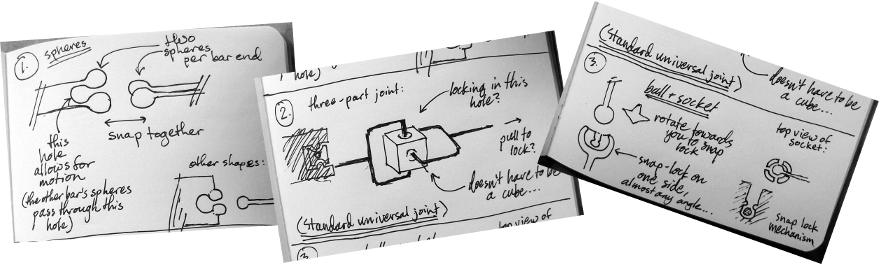 1.
spheres
two
spheres
per bar end
snap together
this
hole
allows for
motion
(the other bar's spheres
pass through this
hole)
other shapes:
hole)
2.
three-part joint:
locking in this
hole?
pull to
lock?
doesn't have to be
a cube...
(Standard universal joint)
3.
top view of
(Standard universal joint)
doesn't have to be
a cube...
3.
ball + socket
rotate towards
you to snap
lock
top view of
socket:
snap-lock on
one side,
almost any angle...
snap lock
mechanism